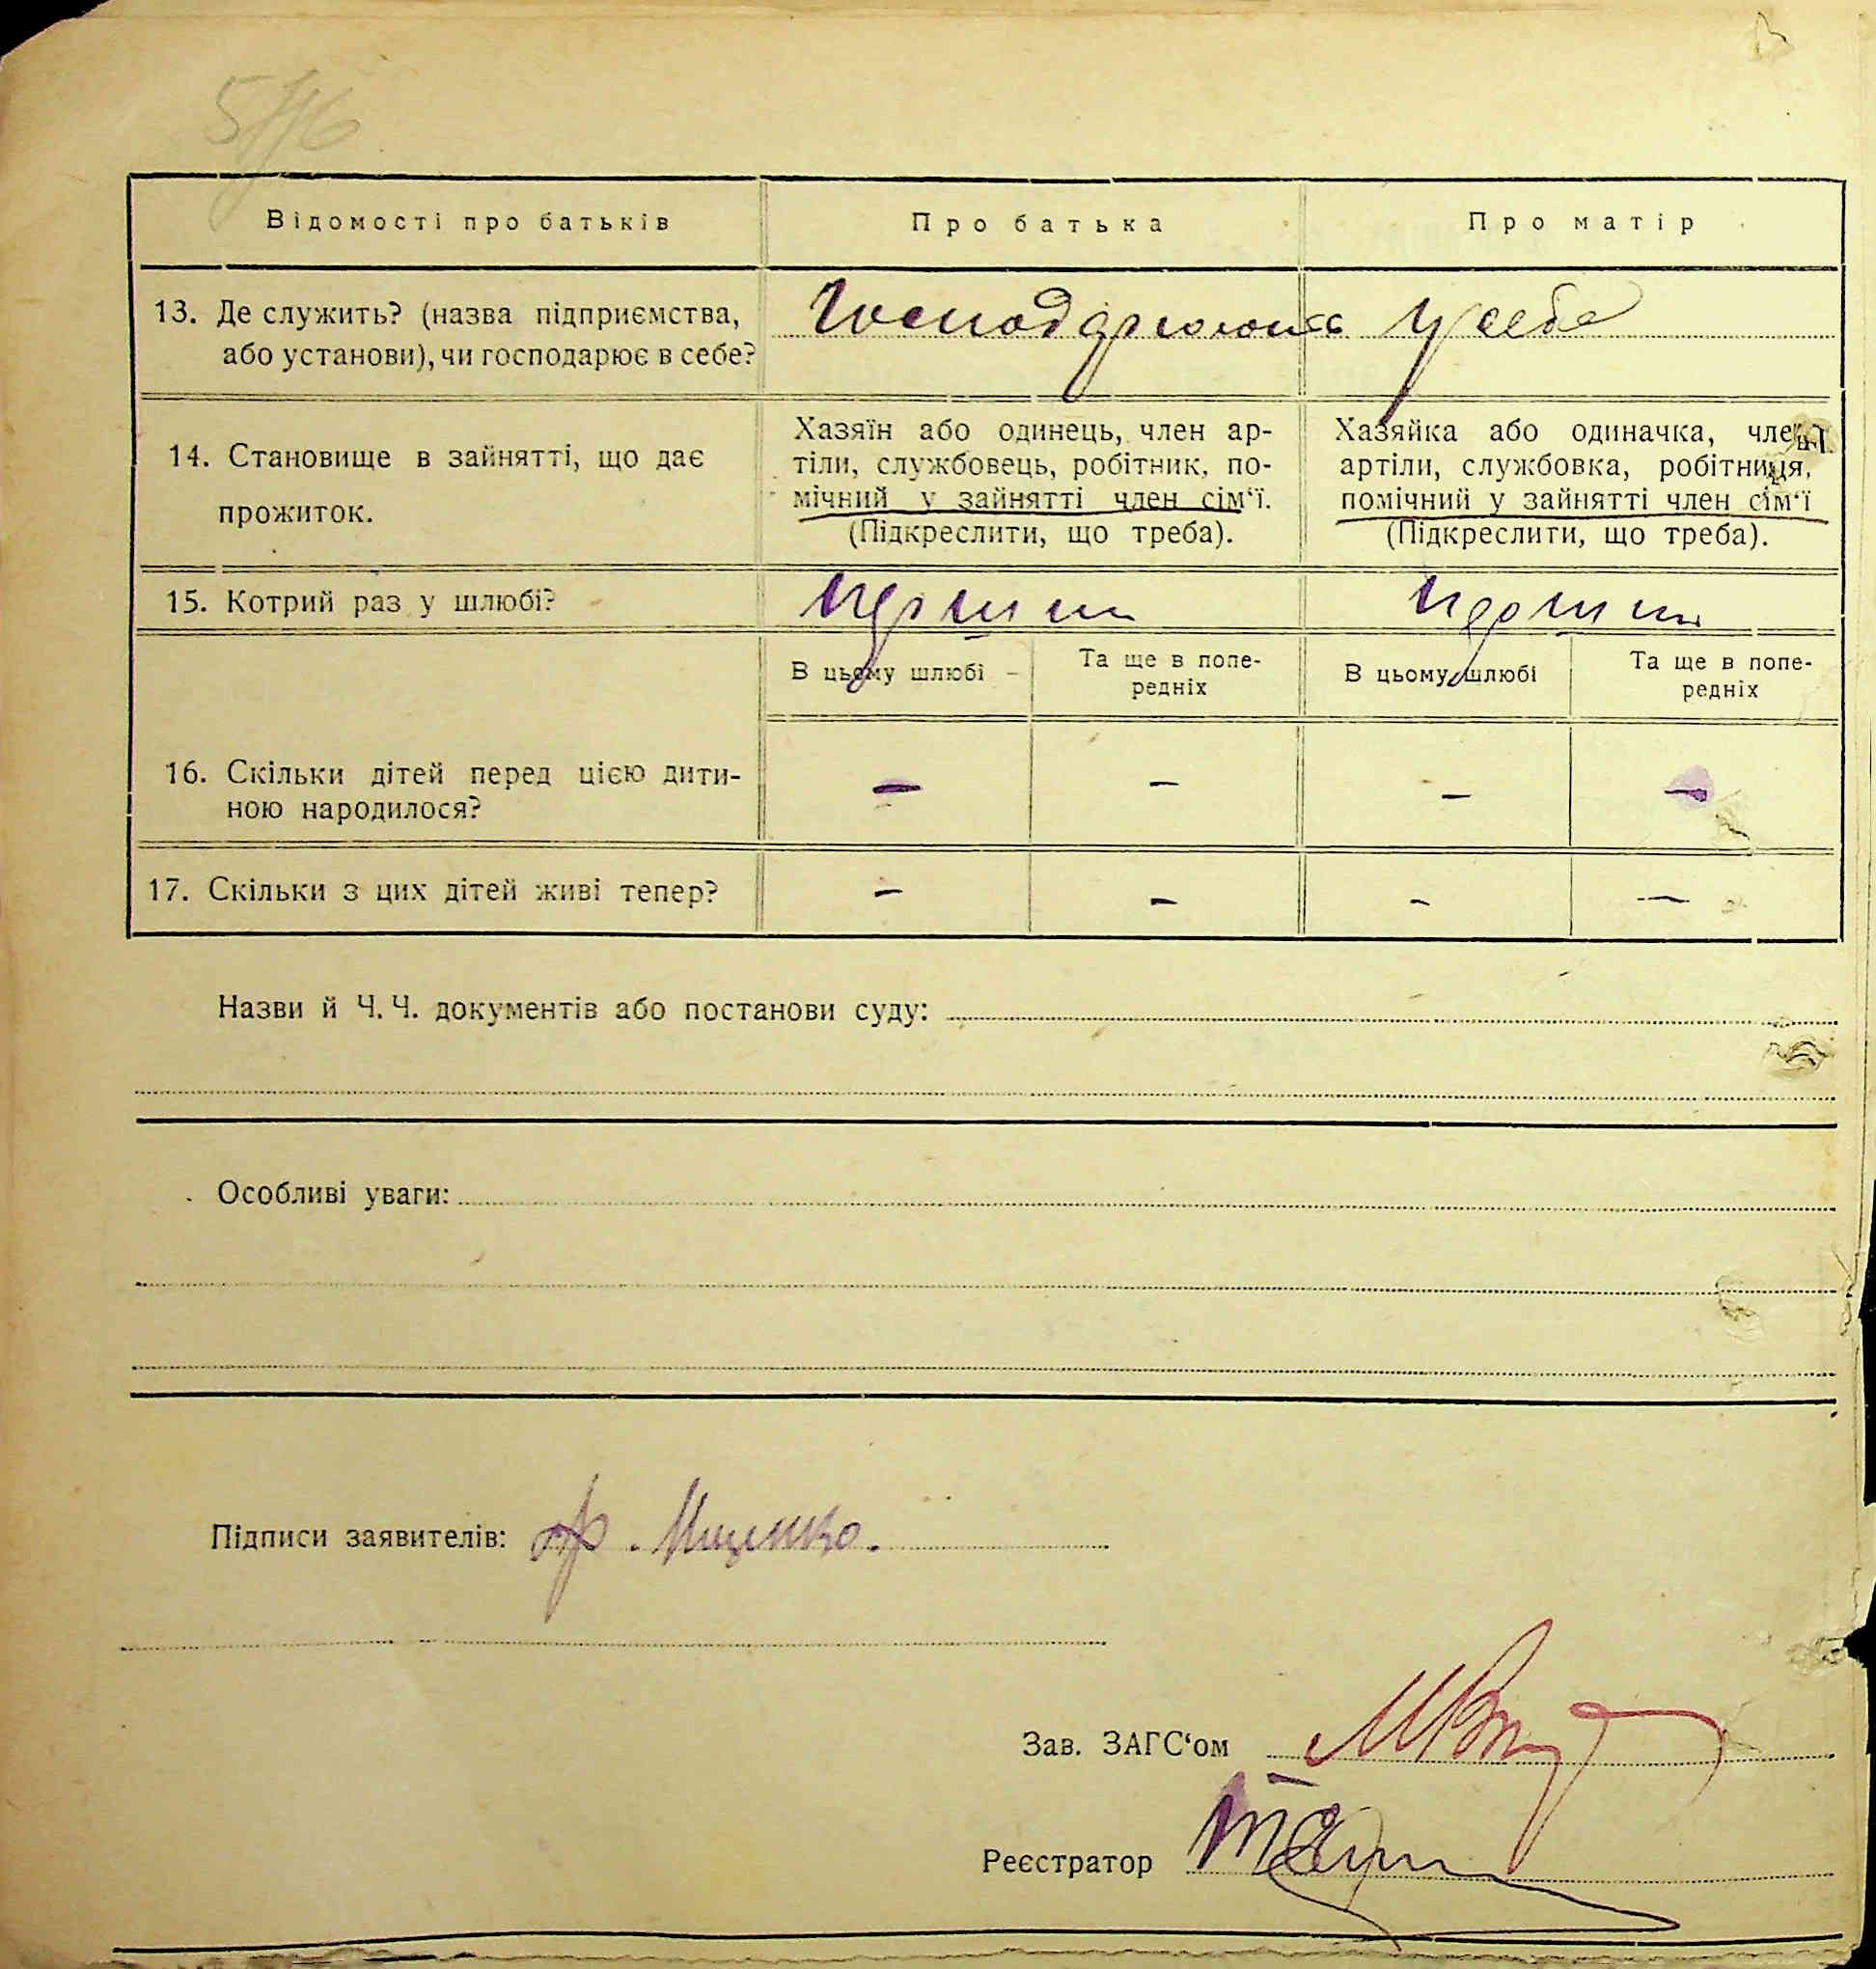 Відомості про батьків
Про батька
Про матір
13. Де служить? (назва підприємства,
або установи), чи господарює в себе?
у себе
14. Становище в зайнятті, що дає
прожиток.
Хазяїн або одинець, член ар-
тіли, службовець, робітник, по-
мічний у зайнятті член сім‘ї.
(Підкреслити, що треба).
Хазяйка або одиначка, член
артіли, службовка, робітниця,
помічний у зайнятті член сім‘ї
(Підкреслити, що треба).
15. Котрий раз у шлюбі?
перший
перший
В цьому шлюбі
Та ще в попе-
редніх
В цьому шлюбі
Та ще в попе-
редніх
16. Скільки дітей перед цією дити-
ною народилося?
–
–
–
–
17. Скільки з цих дітей живі тепер?
–
–
–
–
Назви й Ч. Ч. документів або постанови суду:
Особливі уваги:
Підписи заявителів: Мищенко.
Зав. ЗАГС‘ом
Реєстратор